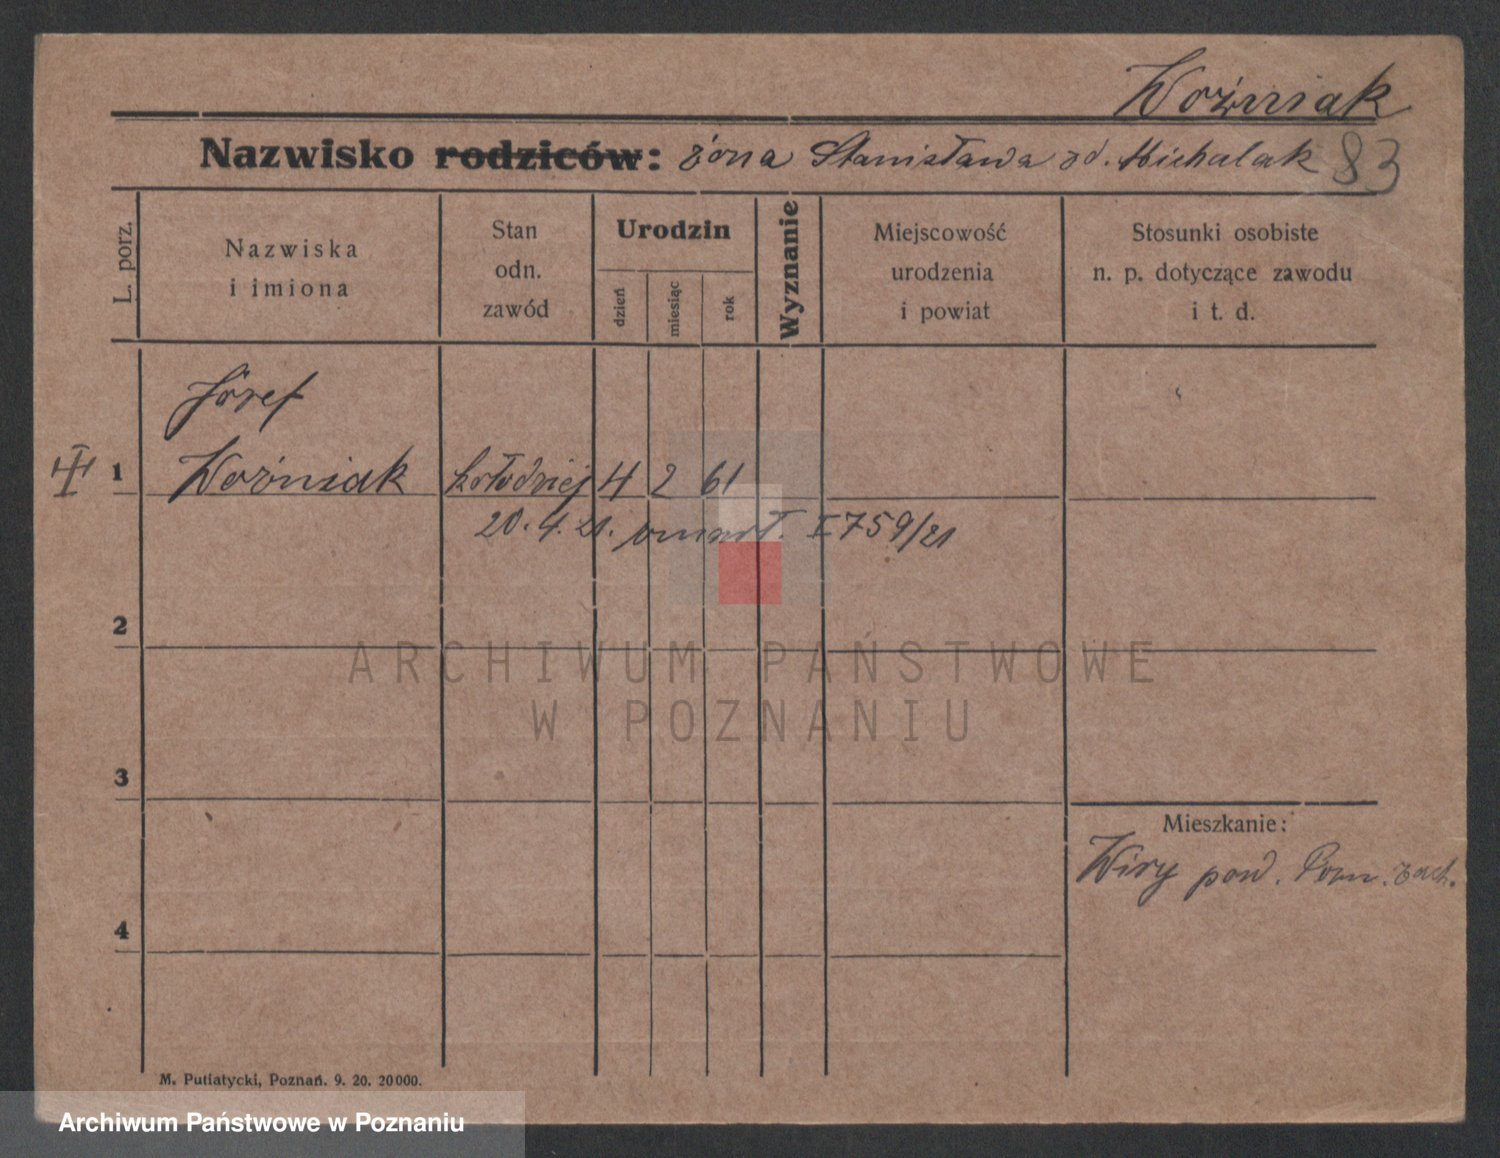 Woźniak
Nazwisko rodziców: żona Stanisława zd. Michalak 83
L. porz.
Nazwiska
i imiona
Stan
odn.
zawód
Urodzin
dzień
miesiąc
rok
Wyznanie
Miejscowość
urodzenia
i powiat
Stosunki osobiste
n. p. dotyczące zawodu
i t. d.
Józef
1 Woźniak kołodziej 4 2 61
20. 4. 21. umarł. I 759/21
2
ARCHIWUM PAŃSTWOWE
W POZNANIU
3
Mieszkanie:
Wiry pow. Pozn. zach.
4
M. Putiatycki, Poznań. 9. 20. 20000.
Archiwum Państwowe w Poznaniu